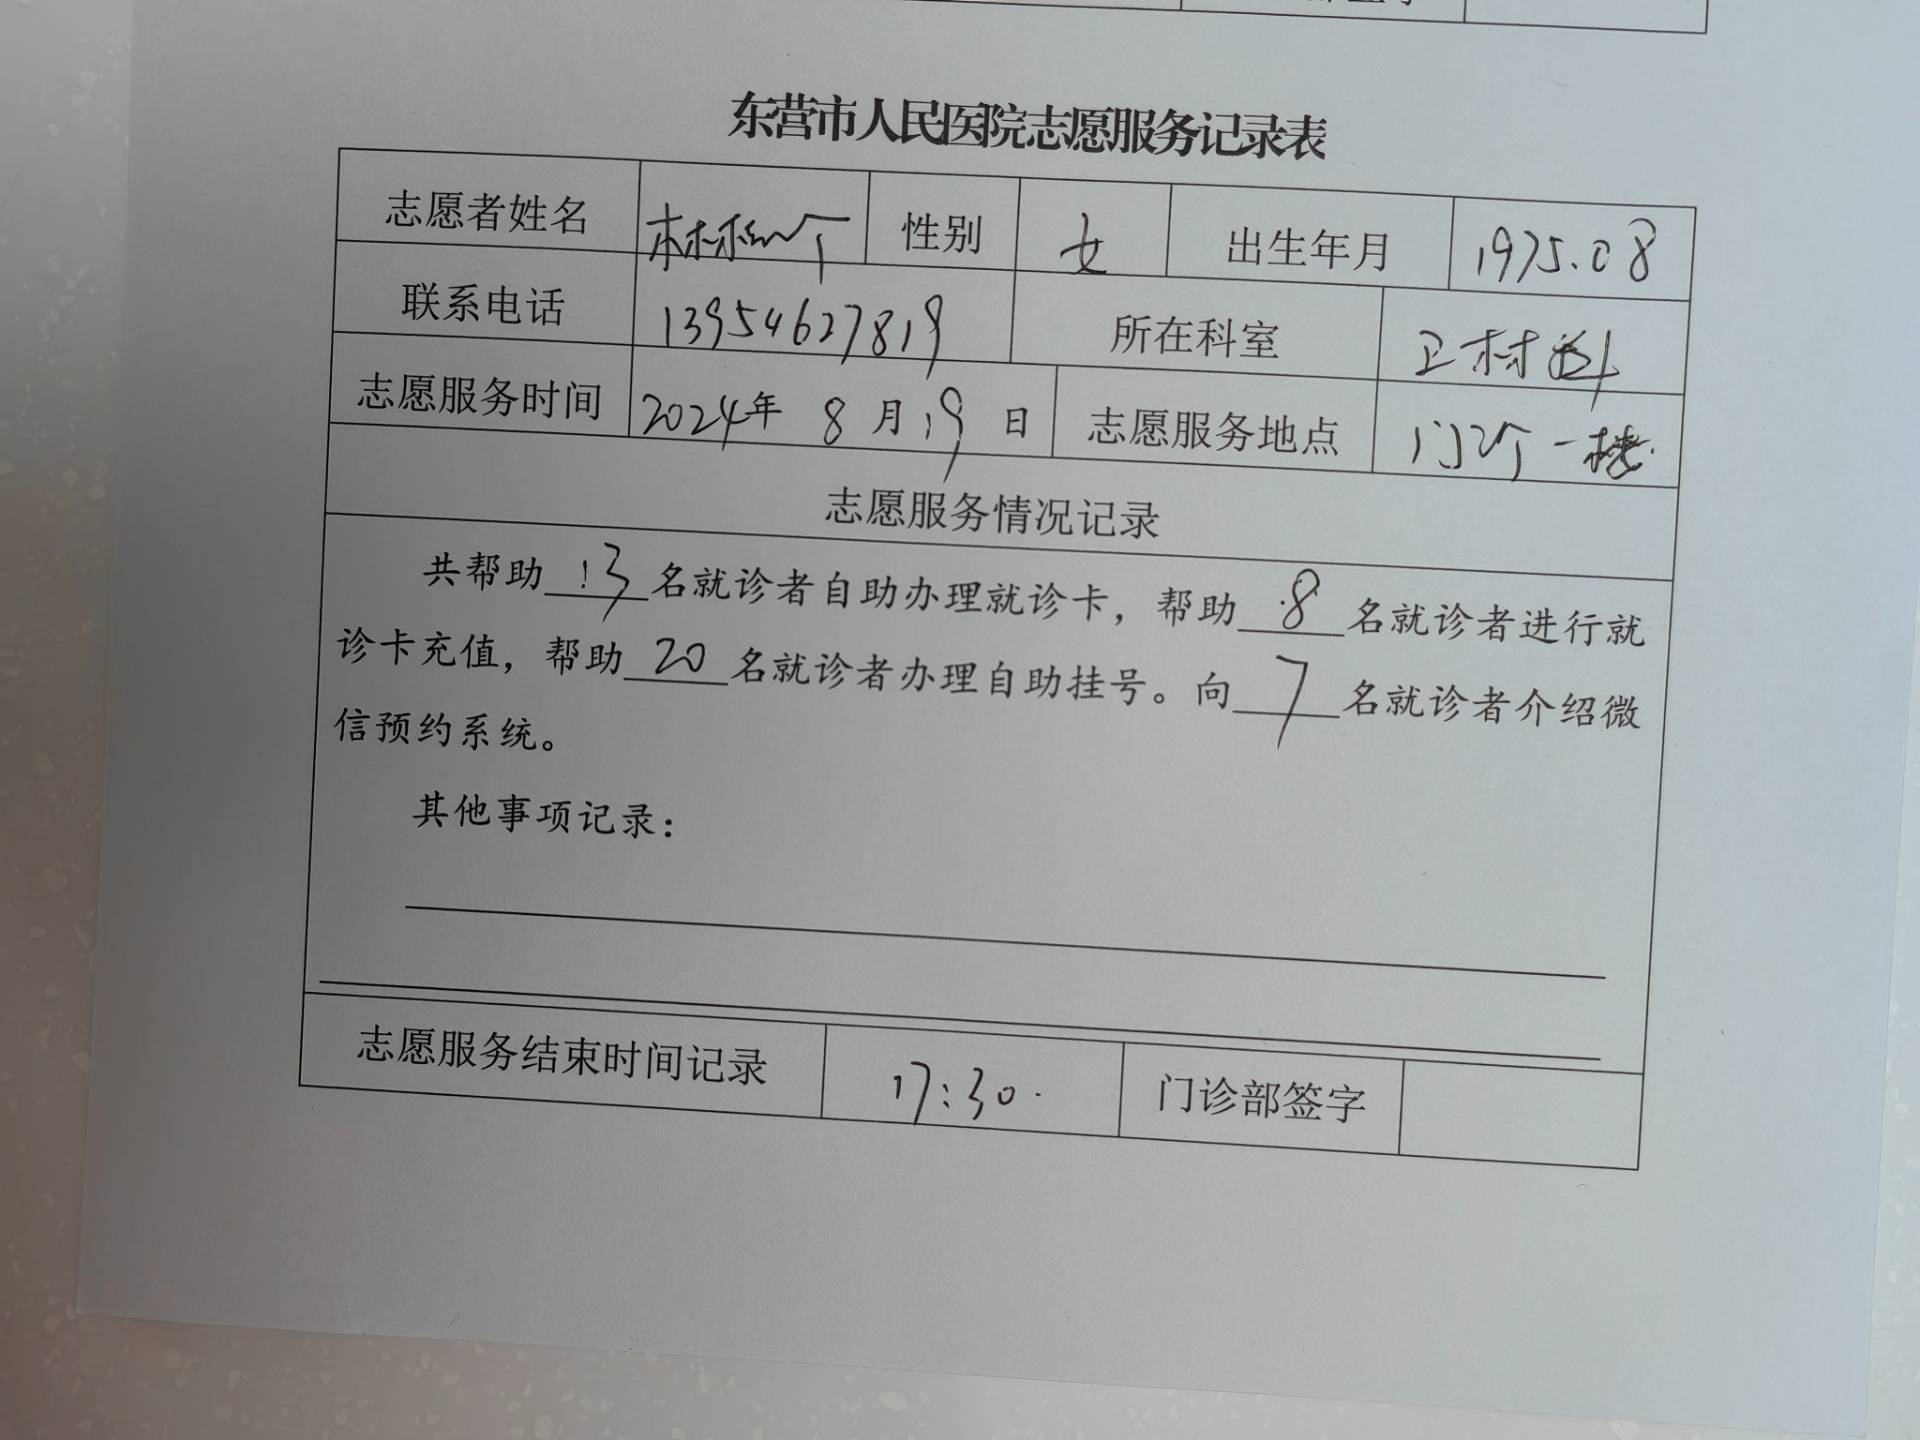 东营市人民医院志愿服务记录表
志愿者姓名 性别 女 出生年月 1975.08
联系电话 13954627819 所在科室 卫材科
志愿服务时间 2024年 8 月 19 日 志愿服务地点 门诊一楼
志愿服务情况记录
共帮助 13 名就诊者自助办理就诊卡，帮助 8 名就诊者进行就
诊卡充值，帮助 20 名就诊者办理自助挂号。向 7 名就诊者介绍微
信预约系统。
其他事项记录：
志愿服务结束时间记录 17:30. 门诊部签字